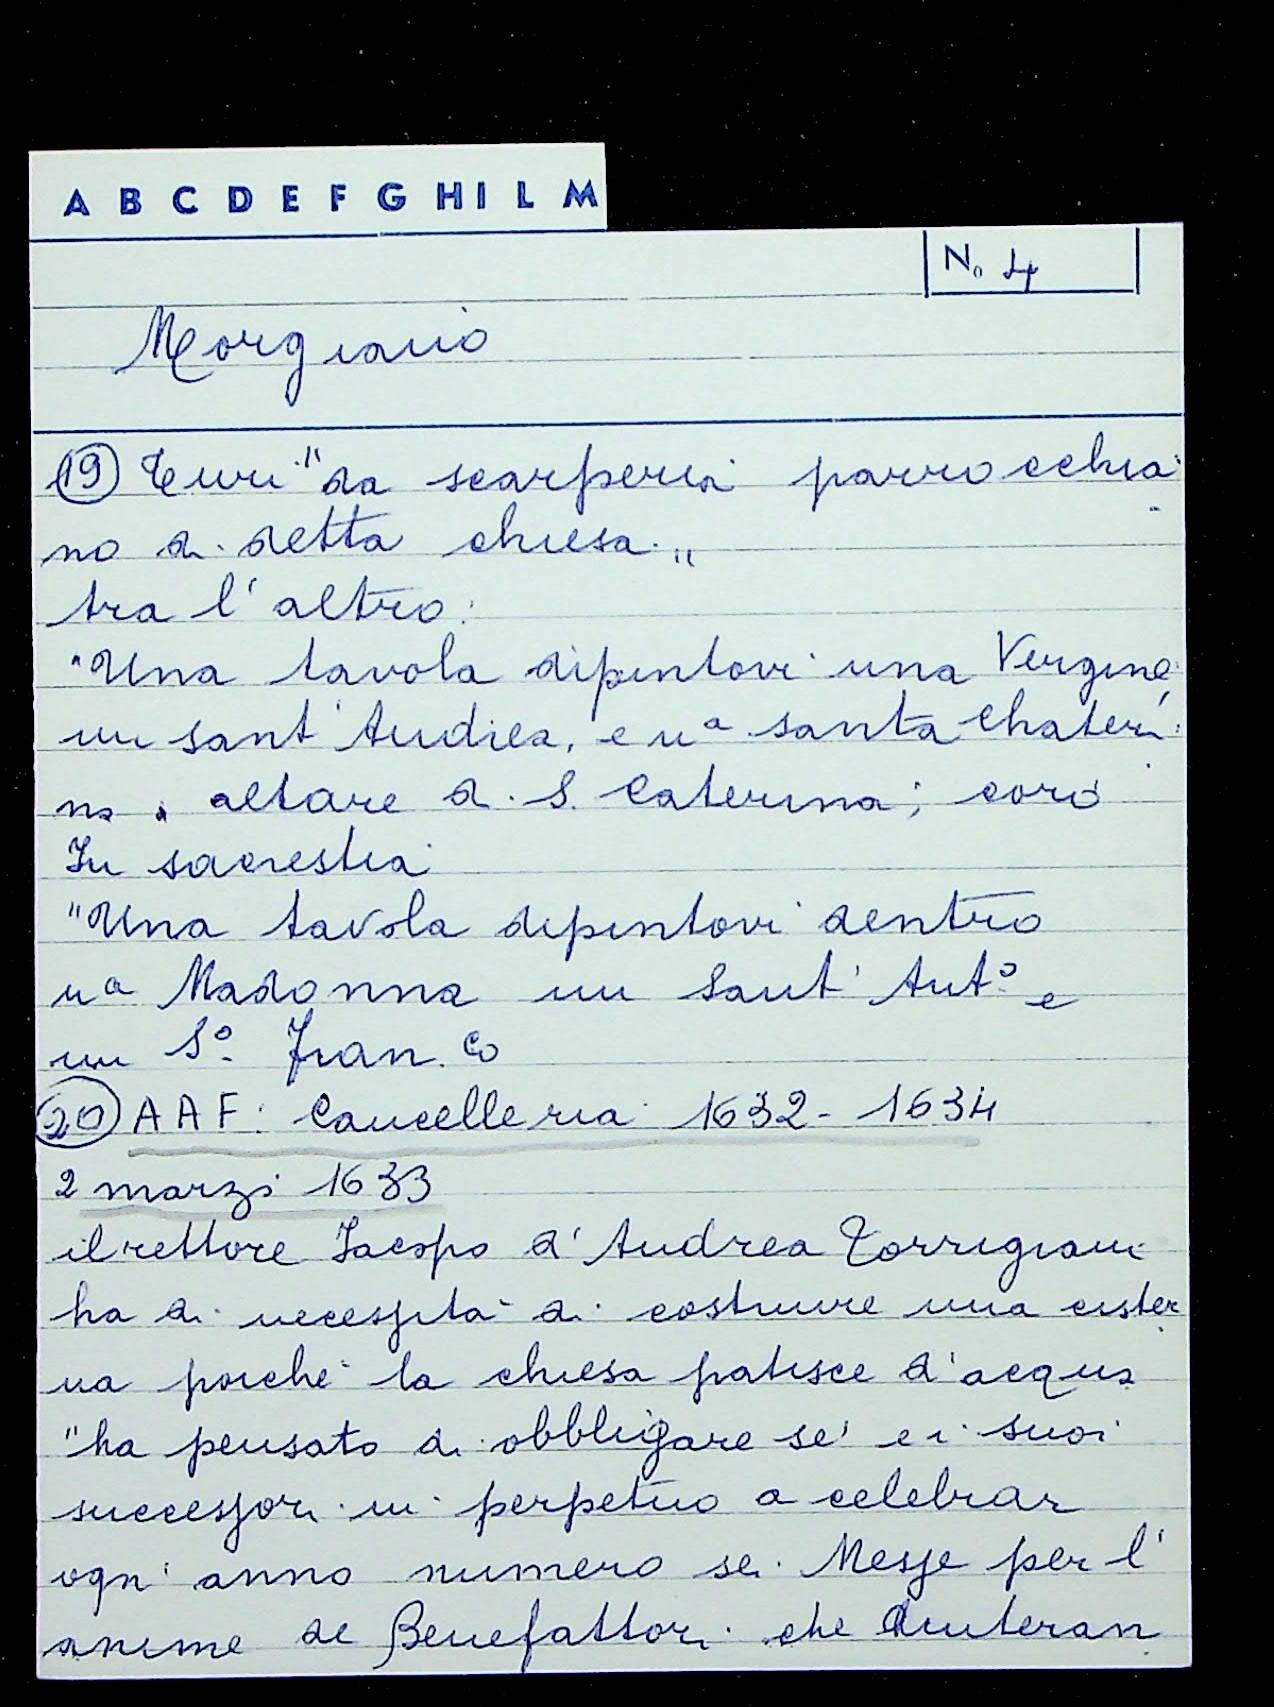 A B C D E F G H I L M
No 4
Morgiano
19 Turi "da scarperia parrocchia
no di detta chiesa"
tra l'altro:
"Una tavola dipintovi una Vergine
un sant'Andrea, e uª santa Chateri
na. altare di S. Caterina; coro
In sacrestia
"Una tavola dipintovi dentro
uª Madonna un Sant'Antº e
un Sº Fran.co
20 AAF: Cancelleria 1632-1634
2 marzi 1633
il rettore Jacopo d'Andrea Torrigiani
ha di necessità di costruire una cister
na poiché la chiesa patisce d'acqua
"ha pensato di obbligare sé e i suoi
successori in perpetuo a celebrar
ogni anno numero sei Messe per l'
anime de Benefattori che Aiuteran